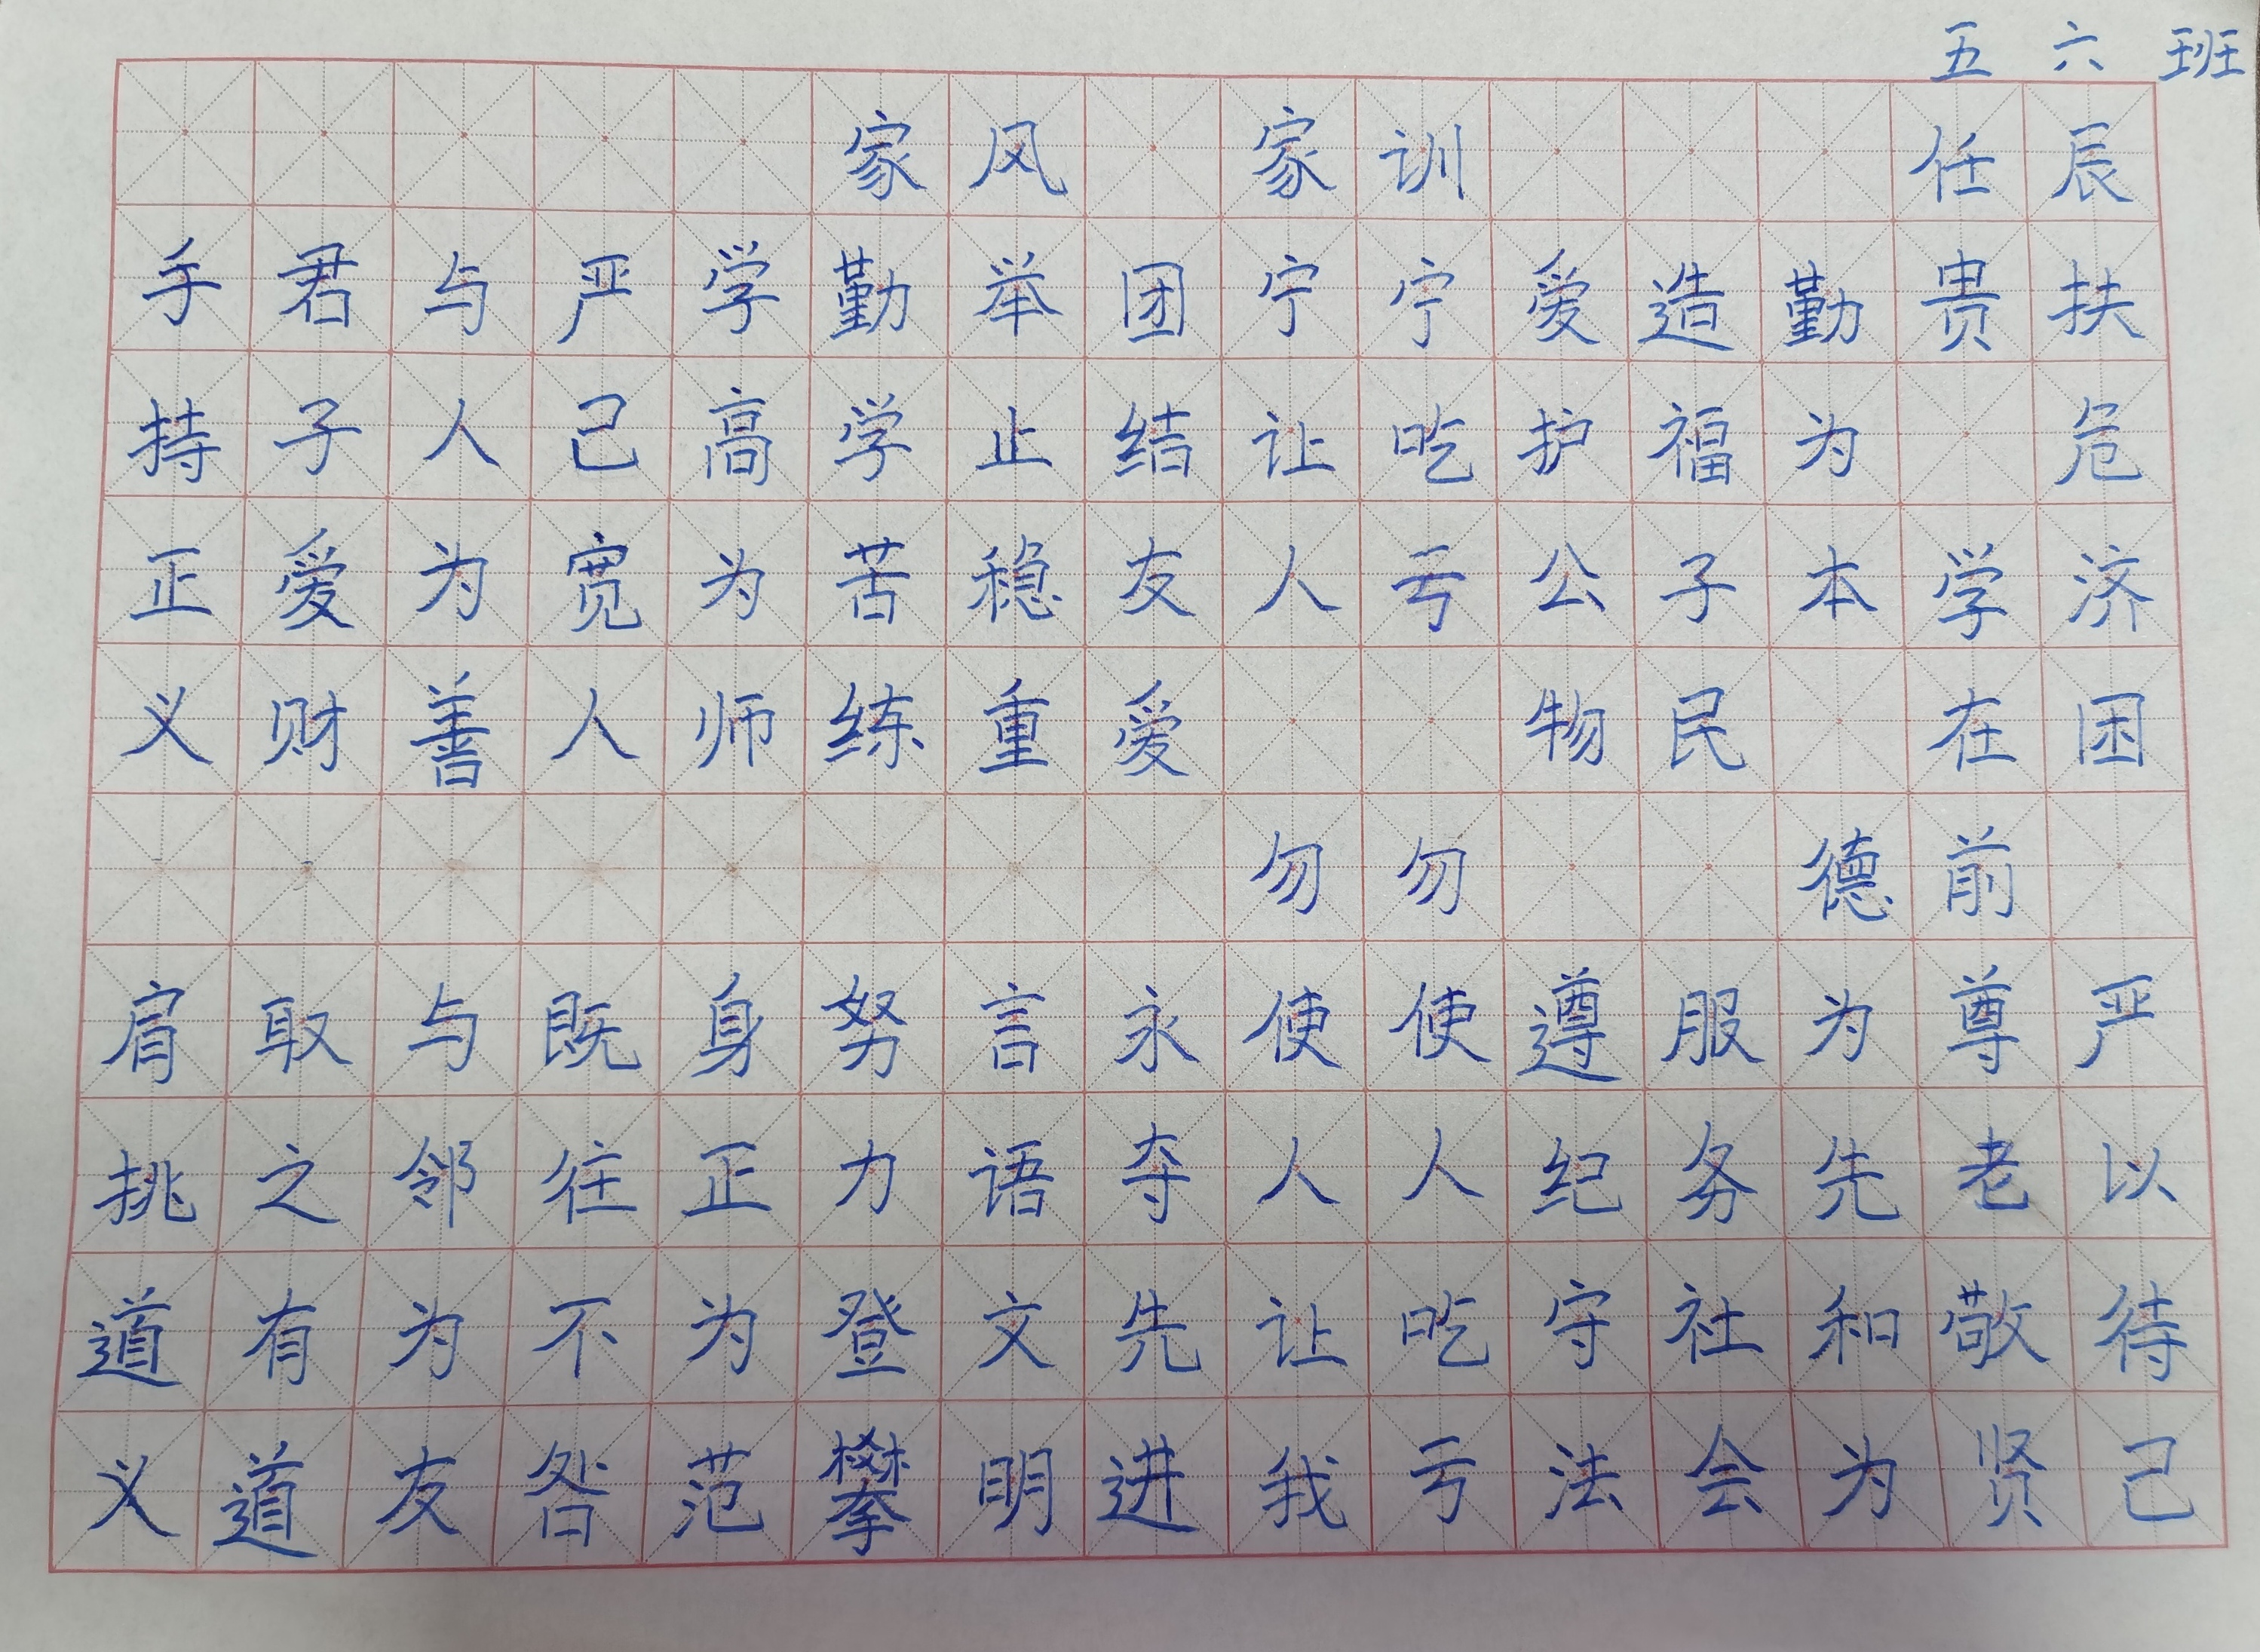 五六班
家风 家训 任辰
手持正义 肩挑道义
君子爱财 取之有道
与人为善 与邻为友
严己宽人 既往不咎
学高为师 身正为范
勤学苦练 努力登攀
举止稳重 言语文明
团结友爱 永夺先进
宁让人 勿使人让我
宁吃亏 勿使人吃亏
爱护公物 遵纪守法
造福子民 服务社会
勤为本 德为先和为
贵 学在前尊老敬贤
扶危济困 严以待己